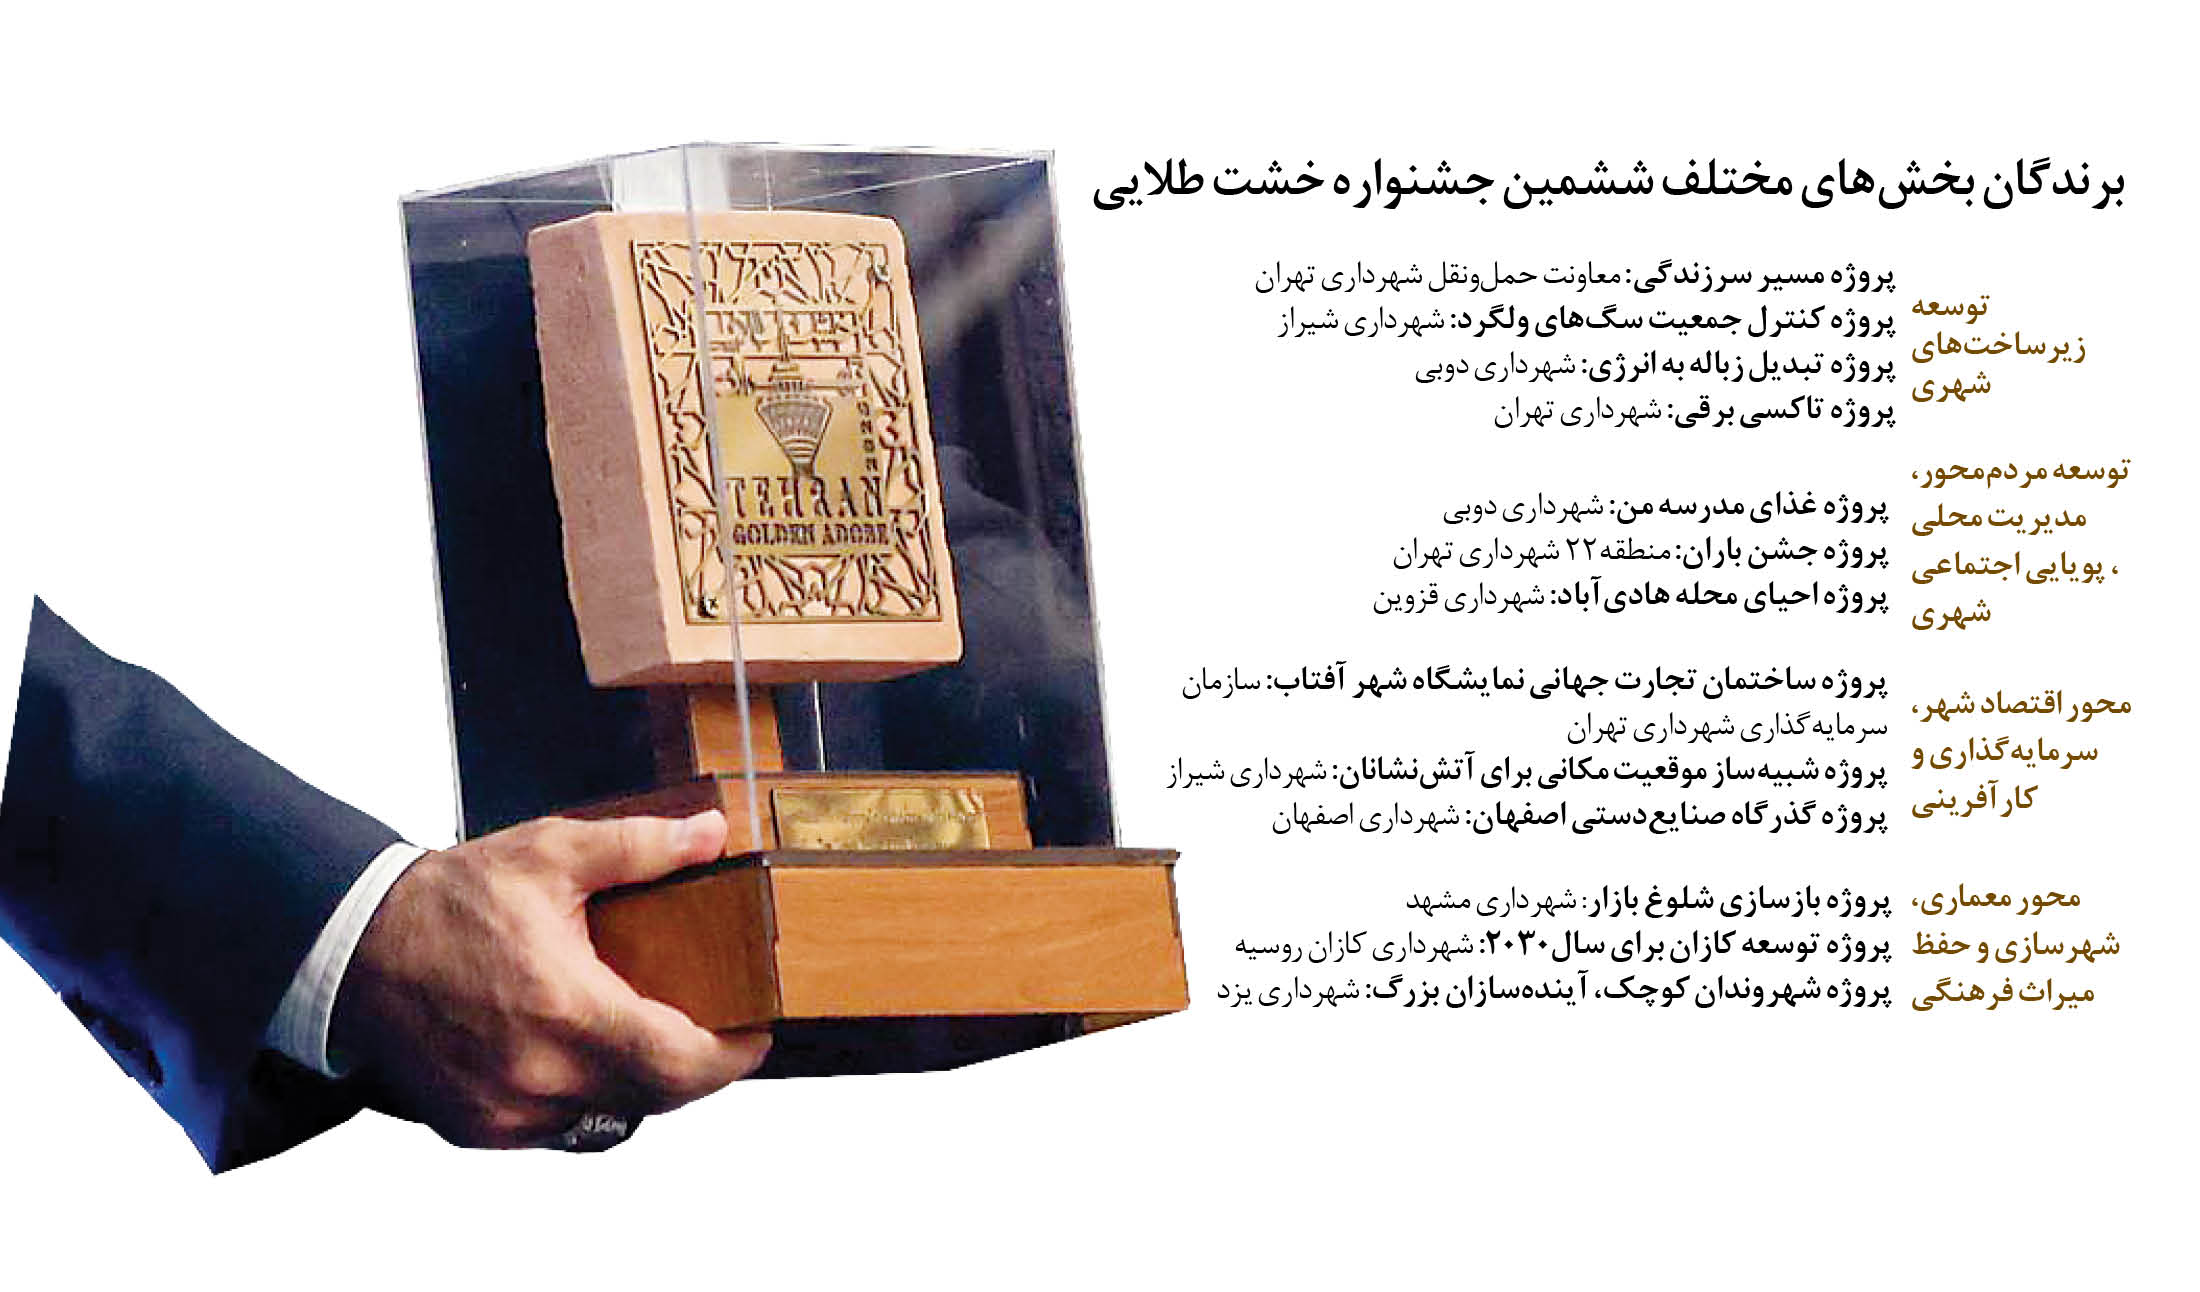 برندگان بخش‌های مختلف ششمین جشنواره خشت طلایی
توسعه
زیرساخت‌های
شهری
پروژه مسیر سرزندگی: معاونت حمل‌ونقل شهرداری تهران
پروژه کنترل جمعیت سگ‌های ولگرد: شهرداری شیراز
پروژه تبدیل زباله به انرژی: شهرداری دوبی
پروژه تاکسی برقی: شهرداری تهران
توسعه مردم‌محور،
مدیریت محلی
، پویایی اجتماعی
شهری
پروژه غذای مدرسه من: شهرداری دوبی
پروژه جشن باران: منطقه۲۲ شهرداری تهران
پروژه احیای محله هادی‌آباد: شهرداری قزوین
محور اقتصاد شهر،
سرمایه‌گذاری و
کارآفرینی
پروژه ساختمان تجارت جهانی نمایشگاه شهر آفتاب: سازمان
سرمایه‌گذاری شهرداری تهران
پروژه شبیه‌ساز موقعیت مکانی برای آتش‌نشانان: شهرداری شیراز
پروژه گذرگاه صنایع‌دستی اصفهان: شهرداری اصفهان
محور معماری،
شهرسازی و حفظ
میراث فرهنگی
پروژه بازسازی شلوغ بازار: شهرداری مشهد
پروژه توسعه کازان برای سال۲۰۳۰: شهرداری کازان روسیه
پروژه شهروندان کوچک، آینده‌سازان بزرگ: شهرداری یزد
TEHRAN
GOLDEN ADOBE